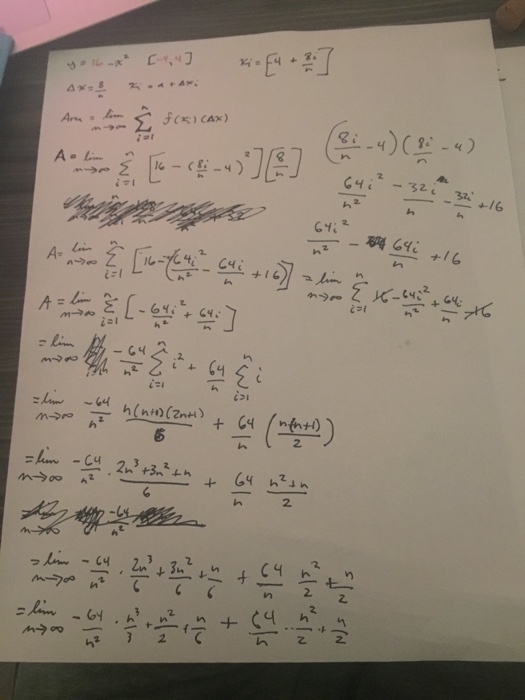 y = 16 - x² [-4, 4] xᵢ = [4 + 8i/n]
Δx = 8/n xᵢ = a + Δxᵢ
Area = lim n→∞ Σ i=1 n f(xᵢ)(Δx)
A = lim n→∞ Σ i=1 n [16 - (8i/n - 4)²][8/n] (8i/n - 4)(8i/n - 4)
64i²/n² - 32i/n - 32i/n + 16
64i²/n² - 64i/n + 16
A = lim n→∞ Σ i=1 n [16 - (64i²/n² - 64i/n + 16)] = lim n→∞ Σ i=1 n 16 - 64i²/n² + 64i/n - 16
A = lim n→∞ Σ i=1 n [-64i²/n² + 64i/n]
= lim n→∞ -64/n² Σ i=1 n i² + 64/n Σ i=1 n i
= lim n→∞ -64/n² n(n+1)(2n+1)/6 + 64/n (n(n+1)/2)
= lim n→∞ -64/n² · 2n³+3n²+n/6 + 64/n n²+n/2
= lim n→∞ -64/n² · 2n³/6 + 3n²/6 + n/6 + 64/n n²/2 + n/2
= lim n→∞ -64/n² · n³/3 + n²/2 + n/6 + 64/n · n²/2 + n/2